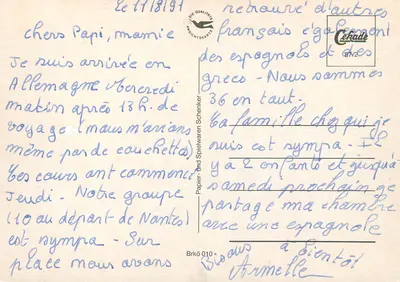 Le 11/8/91
Chers Papi, mamie
Je suis arrivée en
Allemagne Mercredi
matin après 13h. de
voyage (nous n'avions
même pas de couchettes)
Les cours ont commencé
Jeudi - Notre groupe
(10 au départ de Nantes)
est sympa - Sur
place nous avons
retrouvé d'autres
français également
des espagnols et des
grecs - Nous sommes
36 en tout.
La famille chez qui je
suis est sympa - Il
y a 2 enfants et jusqu'à
samedi prochain je
partage ma chambre
avec une espagnole
Bisous à bientôt
Armelle
Papier- und Spielwaren Schenker
Brkö 010